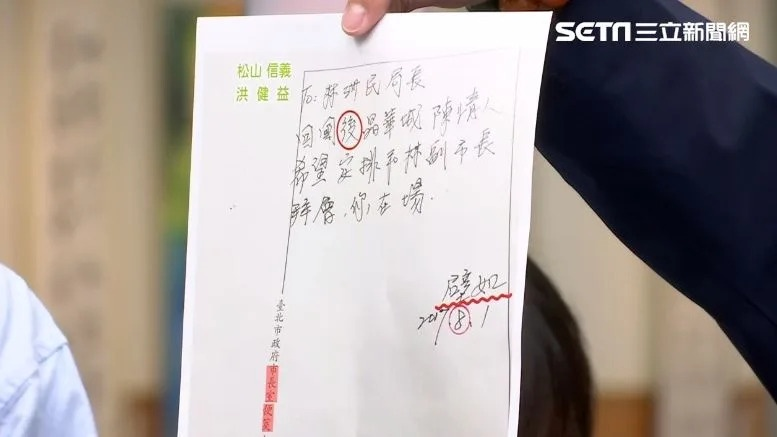 SETN三立新聞網
松山 信義
洪健益
To: 林洲民局長
回國後晶華城陳情人
希望定排和林副市長
拜會,你在場.
壁如
2017.8.1
臺北市政府市長室便箋